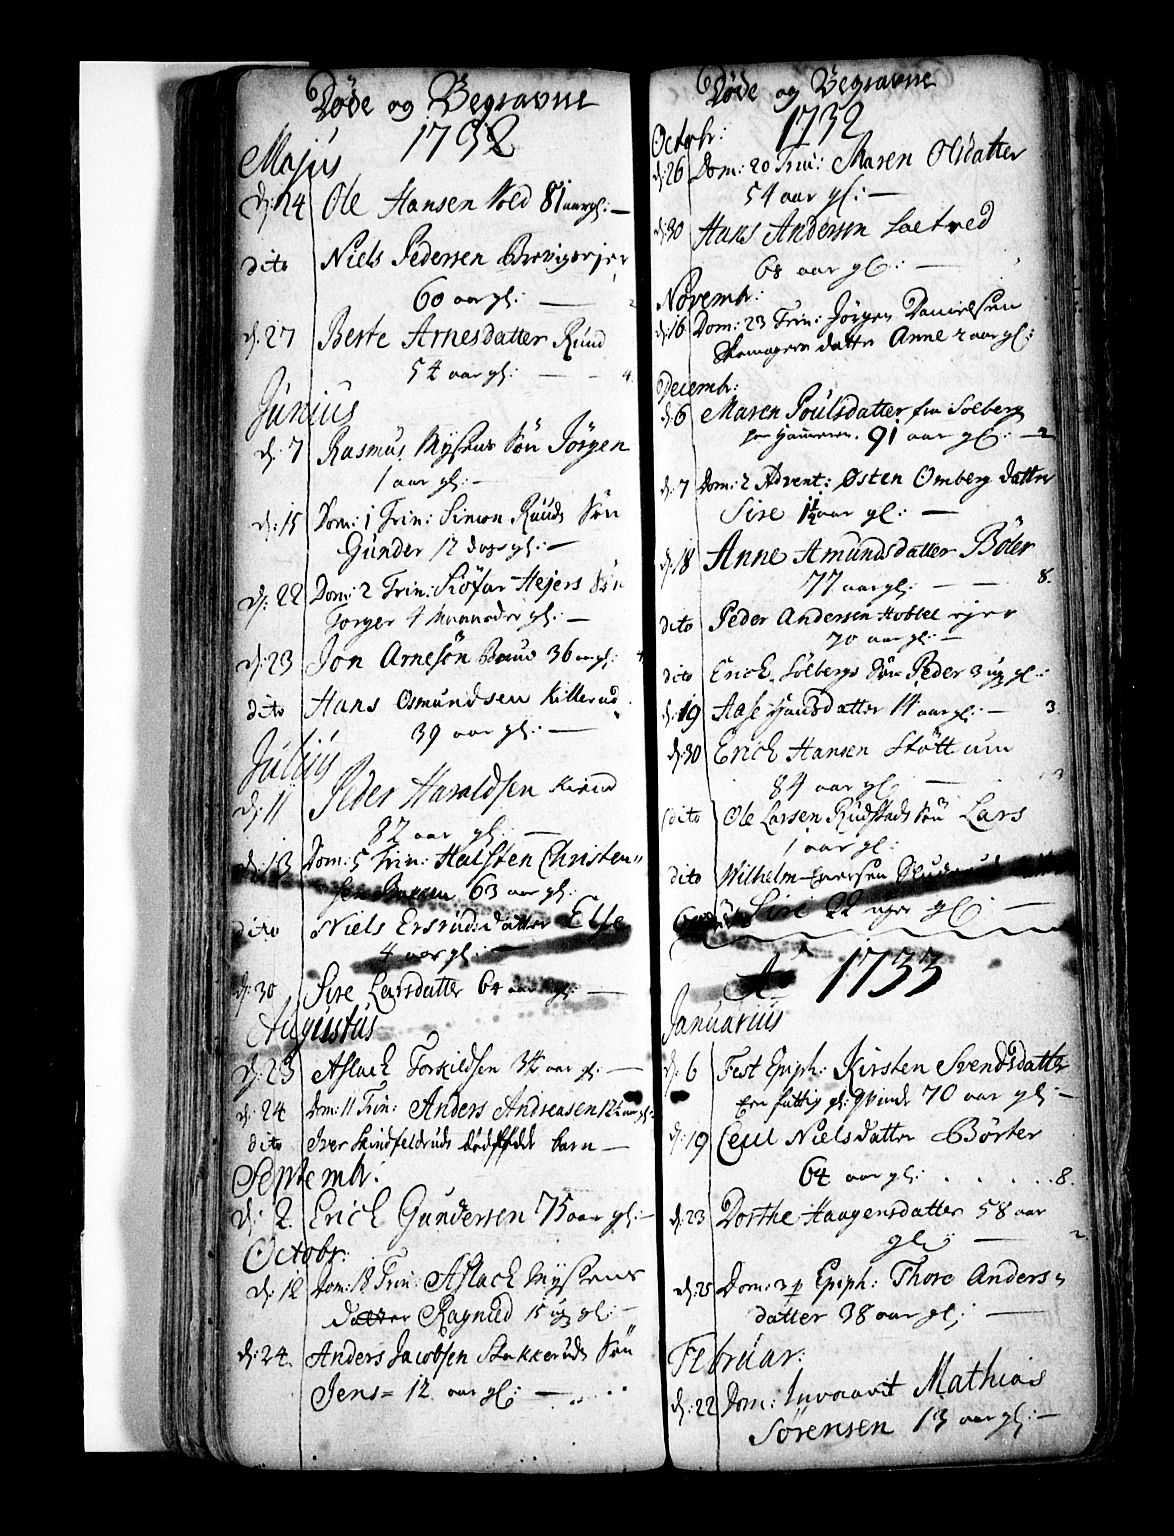 Døde og Begravne
1732
Majus
d: 24 Ole Hansen Vold 81 aar gl:
dito Niels Pedersen
60 aar gl:
d: 27 Berte Arnesdatter Rúúd
54 aar gl: 4.
Június
d: 7 Rasmus Mysens Søn Jörgen
1 aar gl:
d: 15 Dom: 1 Trin: Simon Rúúds Søn
Gúnder 12 dage gl:
d: 22 Dom: 2 Trin: Hejers Søn
Torger 4 Maaneder gl:
d: 23 Jon Arnesön 36 aar gl:
dito Hans Osmúndsen Killerud
39 aar gl:
Júliús
d: 11 Peder Haraldsen
82 aar gl:
d: 13 Dom: 5 Trin: Halsten Christen"
sen 63 aar gl:
dito Niels Ersrúds datter Else
4 aar gl:
d: 30 Sire Larsdatter aar gl:
Aúgústús
d: 23 Aslach Torkildsen 34 aar gl:
d: 24 Dom: 11 Trin: Anders Andreasen
dito Iver Skindfeldrúds dødfødt barn
Septembr:
d: 2 Erich Gúndersen 75 aar gl:
Octobr:
d: 12 Dom: 18 Trin: Aslach Mysens
datter Ragnild 15 ug gl:
d: 24. Anders Jacobsen Stokkerúds Søn
Jens = 12 aar gl:
Døde og Begravne
1732
Octobr:
d: 26 Dom: 20 Trin: Maren Olsdatter
54 aar gl:
d: 30 Hans Andersen
68 aar gl:
Novembr:
d: 16 Dom: 23 Trin: Jörgen Danielsen
Skomagers datter Anne 2 aar gl:
Decembr:
d: 6 Maren Poúlsdatter fra Solberg
91 aar gl: 2
d: 7 Dom: 2 Advent: Østen Omberg datter
Sire aar gl:
d: 18 Anne Amúndsdatter Böler
77 aar gl: 8.
dito Peder Andersen
70 aar gl:
dito Erich Solbergs Søn Peder 3 ug gl:
d: 19 Aase Hansdatter 14 aar gl: 3.
d: 30 Erich Hansen Stöttum
84 aar gl:
dito Ole Larsen Rúdstads Søn Lars
1 aar gl:
dito Wilhelm Iversen
Sire 22 uger gl:
Ao 1733
Januariús
d: 6 Fest Epiph: Kirsten Svendsdatter
En fattig gl: Qvinde 70 aar gl:
d: 19 Ceul Nielsdatter Börter
64 aar gl: 8.
d: 23 Dorthe Haagensdatter 58 aar
gl: 2.
d: 25 Dom: 3 p Epiph: Thore Anders"
datter 38 aar gl:
Februar:
d: 22 Dom: Invocavit Mathias
Sörensen 13 aar gl: